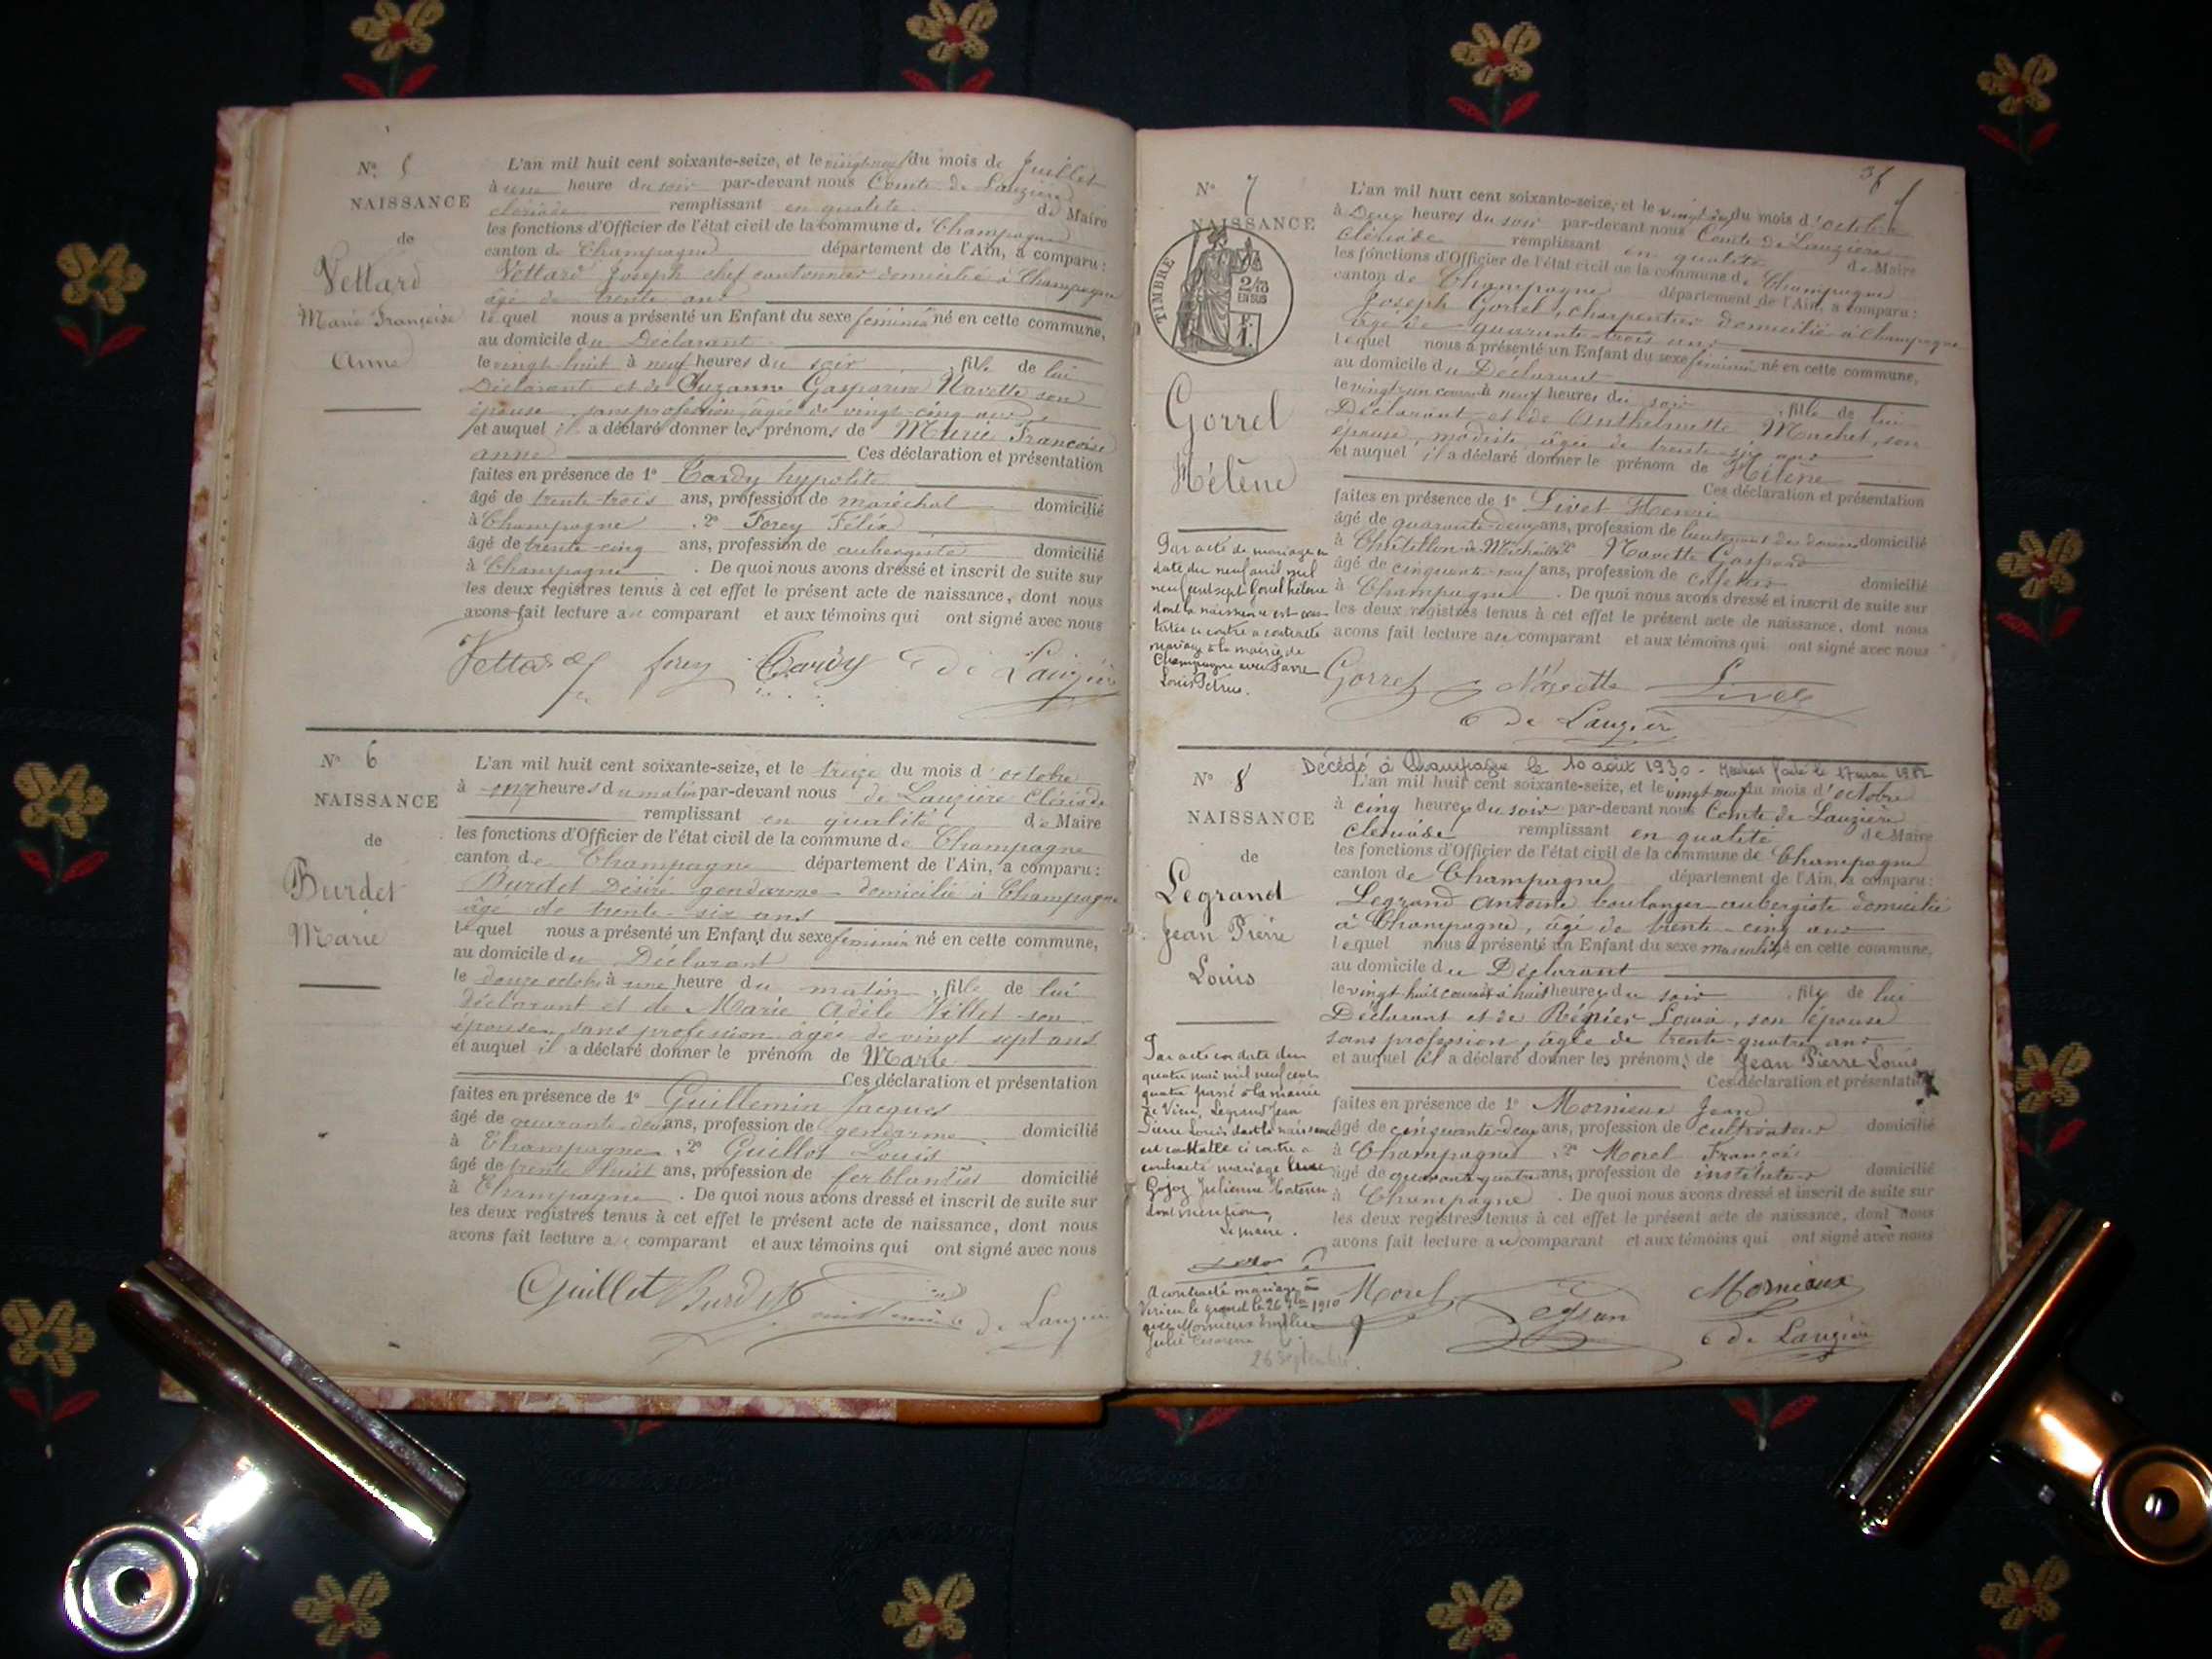 N° 5
NAISSANCE
de
Vettard
Marie Françoise
Anne
L'an mil huit cent soixante-seize, et le vingt neuf du mois de Juillet
à une heure du soir par-devant nous Comte de Lauzière
clériade remplissant en qualité de Maire
les fonctions d'Officier de l'état civil de la commune de Champagne
canton de Champagne département de l'Ain, a comparu:
Vettard Joseph chef cantonnier domicilié à Champagne
âgé de trente ans
lequel nous a présenté un Enfant du sexe féminin né en cette commune,
au domicile du Déclarant
le vingt-huit à neuf heures du soir, fille de lui
Déclarant et de Suzanne Gasparine Navette son
épouse, sans profession âgée de vingt-cinq ans
et auquel il a déclaré donner les prénoms de Marie Françoise
anne Ces déclaration et présentation
faites en présence de 1° Tardy hypolite
âgé de trente-trois ans, profession de maréchal domicilié
à Champagne, 2° Forey Félix
âgé de trente-cinq ans, profession de aubergiste domicilié
à Champagne. De quoi nous avons dressé et inscrit de suite sur
les deux registres tenus à cet effet le présent acte de naissance, dont nous
avons fait lecture au comparant et aux témoins qui ont signé avec nous
Vettard forey Tardy De Lauzière
N° 6
NAISSANCE
de
Burdet
Marie
L'an mil huit cent soixante-seize, et le treize du mois d'octobre
à onze heures du matin par-devant nous de Lauzière Clériade
remplissant en qualité de Maire
les fonctions d'Officier de l'état civil de la commune de Champagne
canton de Champagne département de l'Ain, a comparu:
Burdet Désiré gendarme domicilié à Champagne
âgé de trente-six ans
lequel nous a présenté un Enfant du sexe féminin né en cette commune,
au domicile du Déclarant
le douze octobre à une heure du matin, fille de lui
déclarant et de Marie Adèle Villet son
épouse, sans profession âgée de vingt sept ans
et auquel il a déclaré donner le prénom de Marie
Ces déclaration et présentation
faites en présence de 1° Guillemin Jacques
âgé de quarante-deux ans, profession de gendarme domicilié
à Champagne, 2° Guillot Louis
âgé de trente huit ans, profession de ferblantier domicilié
à Champagne. De quoi nous avons dressé et inscrit de suite sur
les deux registres tenus à cet effet le présent acte de naissance, dont nous
avons fait lecture au comparant et aux témoins qui ont signé avec nous
Guillot Burdet Guillemin de Lauzière
N° 7
NAISSANCE
TIMBRE
2/10
EN SUS
Gorrel
Hélène
Par acte de mariage en
date du neuf avril mil
neuf cent sept Gorrel hélène
dont la naissance est cons-
tatée ci contre a contracté
mariage à la mairie de
Champagne avec Favre
Louis Petrus.
L'an mil huit cent soixante-seize, et le vingt deux du mois d'octobre
à Deux heures du soir par-devant nous Comte de Lauzière
Clériade remplissant en qualité de Maire
les fonctions d'Officier de l'état civil de la commune de Champagne
canton de Champagne département de l'Ain, a comparu:
Joseph Gorrel, charpentier domicilié à Champagne
âgé de quarante-trois ans
lequel nous a présenté un Enfant du sexe féminin né en cette commune,
au domicile du Déclarant
le vingt-un courant à neuf heures du soir, fille de lui
Déclarant et de Anthelmette Machet, son
épouse, modiste âgée de trente-six ans
et auquel il a déclaré donner le prénom de Hélène
Ces déclaration et présentation
faites en présence de 1° Livet Henri
âgé de quarante-deux ans, profession de lieutenant des douanes domicilié
à Châtillon de Michaille 2° Navette Gaspard
âgé de cinquante-neuf ans, profession de cafetier domicilié
à Champagne. De quoi nous avons dressé et inscrit de suite sur
les deux registres tenus à cet effet le présent acte de naissance, dont nous
avons fait lecture au comparant et aux témoins qui ont signé avec nous
Gorrel Navette Livet
C de Lauzière
Décédé à Champagne le 10 août 1930 - Mention faite le 17 mai 1982
N° 8
NAISSANCE
de
Legrand
Jean Pierre
Louis
Par acte en date du
quatre mai mil neuf cent
quatre passé à la mairie
de Vieu, Legrand Jean
Pierre Louis dont la naissance
est constatée ci contre a
contracté mariage avec
Gojoz Julienne
dont mention,
Le maire.
A contracté mariage à
Virieu le grand le 26 7bre 1910
avec Mornieux Emélie
Julie Césarine
26 Septembre.
L'an mil huit cent soixante-seize, et le vingt neuf du mois d'octobre
à cinq heures du soir par-devant nous Comte de Lauzière
Clériade remplissant en qualité de Maire
les fonctions d'Officier de l'état civil de la commune de Champagne
canton de Champagne département de l'Ain, a comparu:
Legrand Antoine boulanger-aubergiste domicilié
à Champagne, âgé de trente-cinq ans
lequel nous a présenté un Enfant du sexe masculin né en cette commune,
au domicile du Déclarant
le vingt huit courant à huit heures du soir, fils de lui
Déclarant et de Régnier Louise, son épouse
sans profession, âgée de trente-quatre ans
et auquel il a déclaré donner les prénoms de Jean Pierre Louis
Ces déclaration et présentation
faites en présence de 1° Mornieux Jean
âgé de cinquante-deux ans, profession de cultivateur domicilié
à Champagne, 2° Morel François
âgé de quarante-quatre ans, profession de instituteur domicilié
à Champagne. De quoi nous avons dressé et inscrit de suite sur
les deux registres tenus à cet effet le présent acte de naissance, dont nous
avons fait lecture au comparant et aux témoins qui ont signé avec nous
Morel Mornieux
C de Lauzière